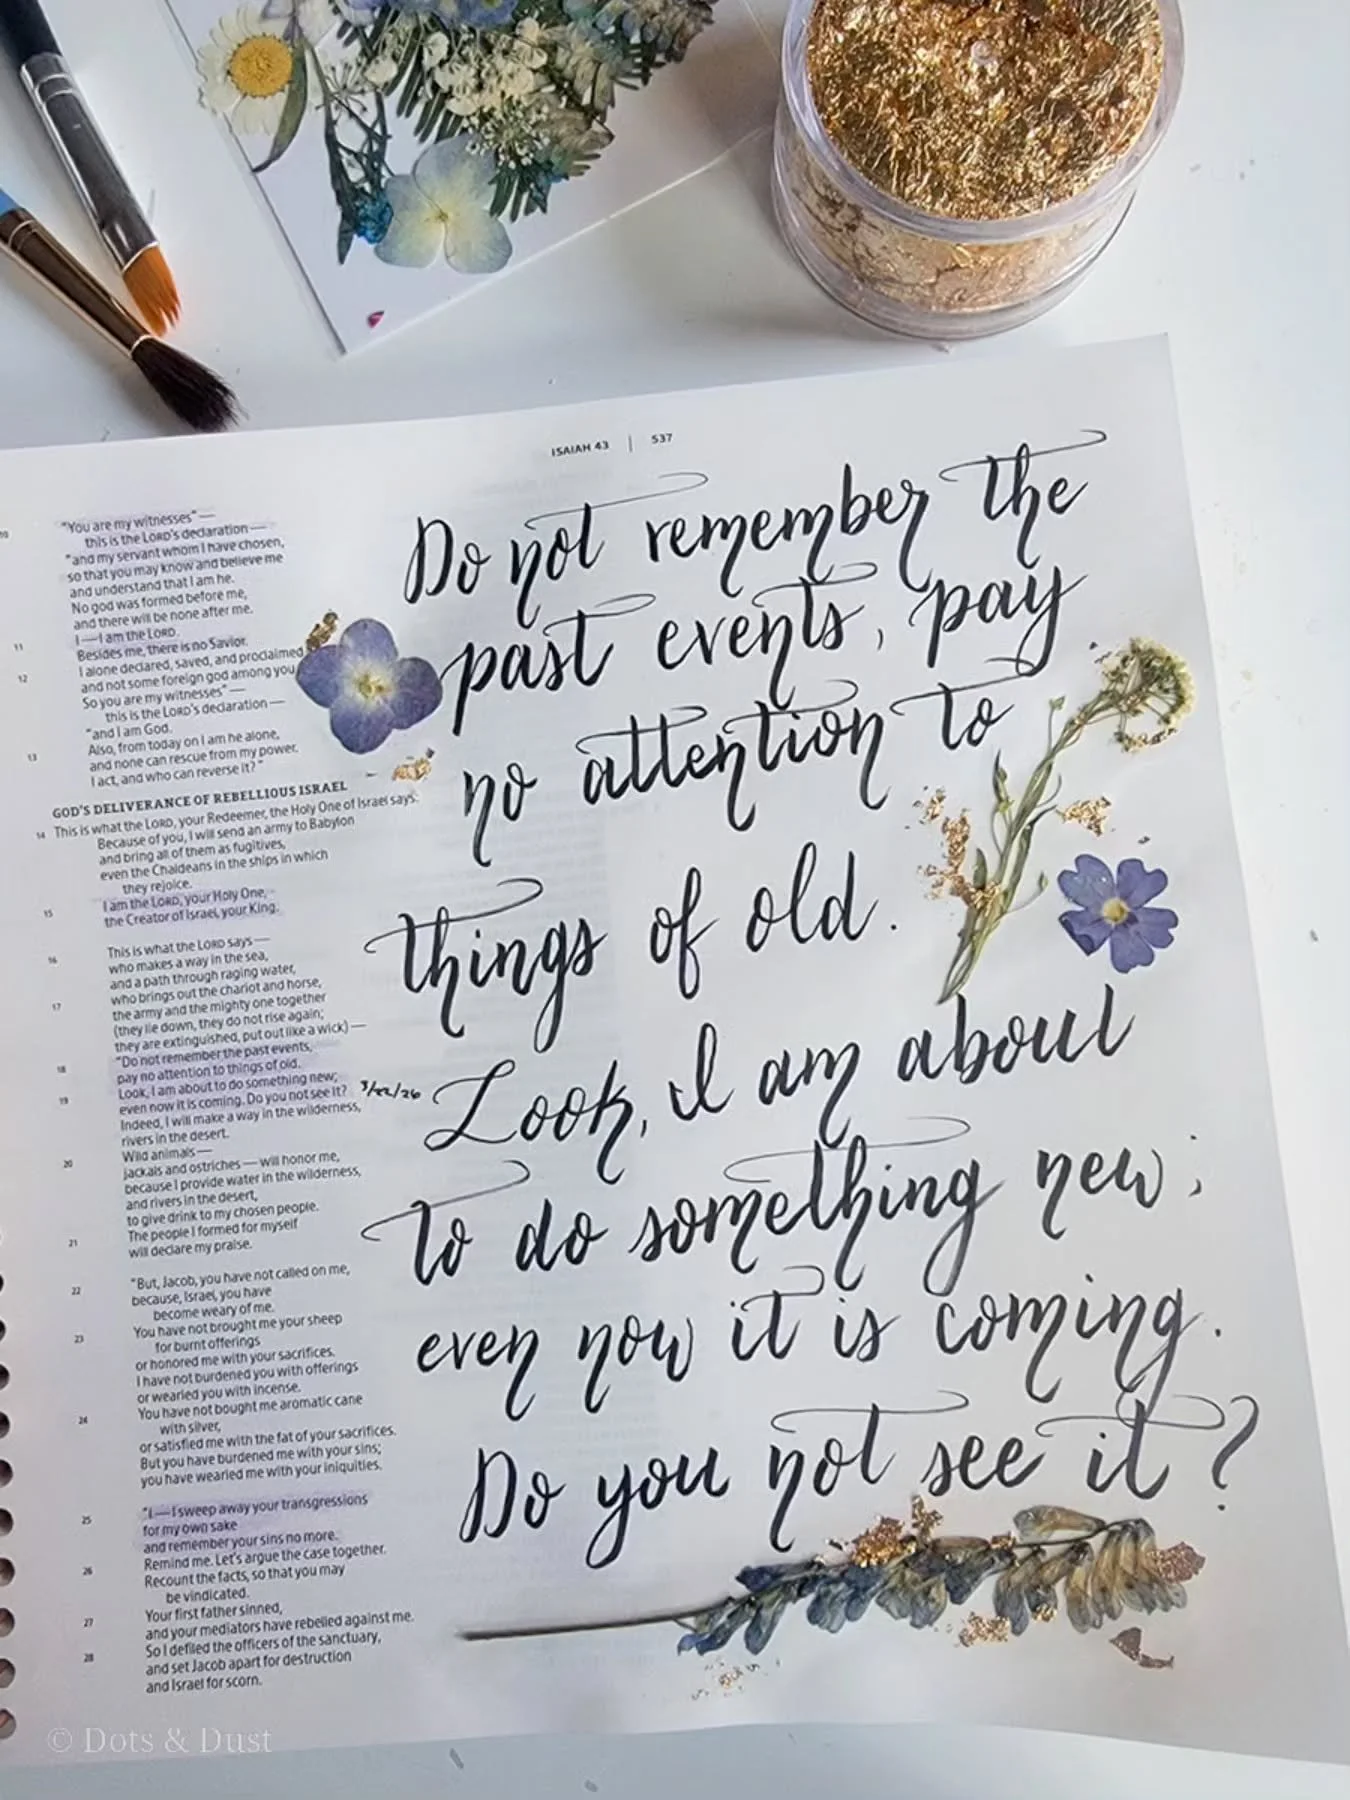 ISAIAH 43 | 537
10 "You are my witnesses" —
this is the LORD's declaration —
"and my servant whom I have chosen,
so that you may know and believe me
and understand that I am he.
No god was formed before me,
and there will be none after me.
11 I — I am the LORD.
Besides me, there is no Savior.
12 I alone declared, saved, and proclaimed
and not some foreign god among you
So you are my witnesses" —
this is the LORD's declaration —
"and I am God.
13 Also, from today on I am he alone,
and none can rescue from my power.
I act, and who can reverse it?"
GOD'S DELIVERANCE OF REBELLIOUS ISRAEL
14 This is what the LORD, your Redeemer, the Holy One of Israel says:
Because of you, I will send an army to Babylon
and bring all of them as fugitives,
even the Chaldeans in the ships in which
they rejoice.
15 I am the LORD, your Holy One,
the Creator of Israel, your King.
16 This is what the LORD says —
who makes a way in the sea,
and a path through raging water,
17 who brings out the chariot and horse,
the army and the mighty one together
(they lie down, they do not rise again;
they are extinguished, put out like a wick) —
18 "Do not remember the past events,
pay no attention to things of old.
19 Look, I am about to do something new;
even now it is coming. Do you not see it? 3/22/26
Indeed, I will make a way in the wilderness,
rivers in the desert.
20 Wild animals —
jackals and ostriches — will honor me,
because I provide water in the wilderness,
and rivers in the desert,
to give drink to my chosen people.
21 The people I formed for myself
will declare my praise.
22 "But, Jacob, you have not called on me,
because, Israel, you have
become weary of me.
23 You have not brought me your sheep
for burnt offerings
or honored me with your sacrifices.
I have not burdened you with offerings
or wearied you with incense.
24 You have not bought me aromatic cane
with silver,
or satisfied me with the fat of your sacrifices.
But you have burdened me with your sins;
you have wearied me with your iniquities.
25 "I — I sweep away your transgressions
for my own sake
and remember your sins no more.
26 Remind me. Let's argue the case together.
Recount the facts, so that you may
be vindicated.
27 Your first father sinned,
and your mediators have rebelled against me.
28 So I defiled the officers of the sanctuary,
and set Jacob apart for destruction
and Israel for scorn.
Do not remember the
past events, pay
no attention to
things of old.
Look, I am about
to do something new;
even now it is coming.
Do you not see it?
© Dots & Dust